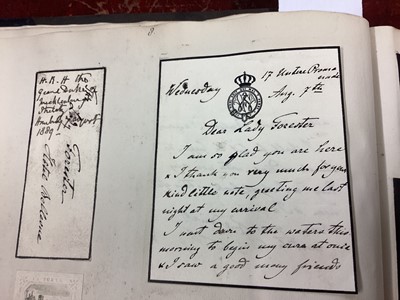 8
H. R. H the
Grand Duke of
Mecklenburg
Strelitz
August
1889
Forester
Hotel Bellevue
17 Untere Prome
nade
Wednesday Aug. 7th
Dear Lady Forester
I am so glad you are here
& I thank you very much for your
kind little note, greeting me last
night at my arrival
I must drive to the waters this
morning to begin my cura at once
& I saw a good many friends